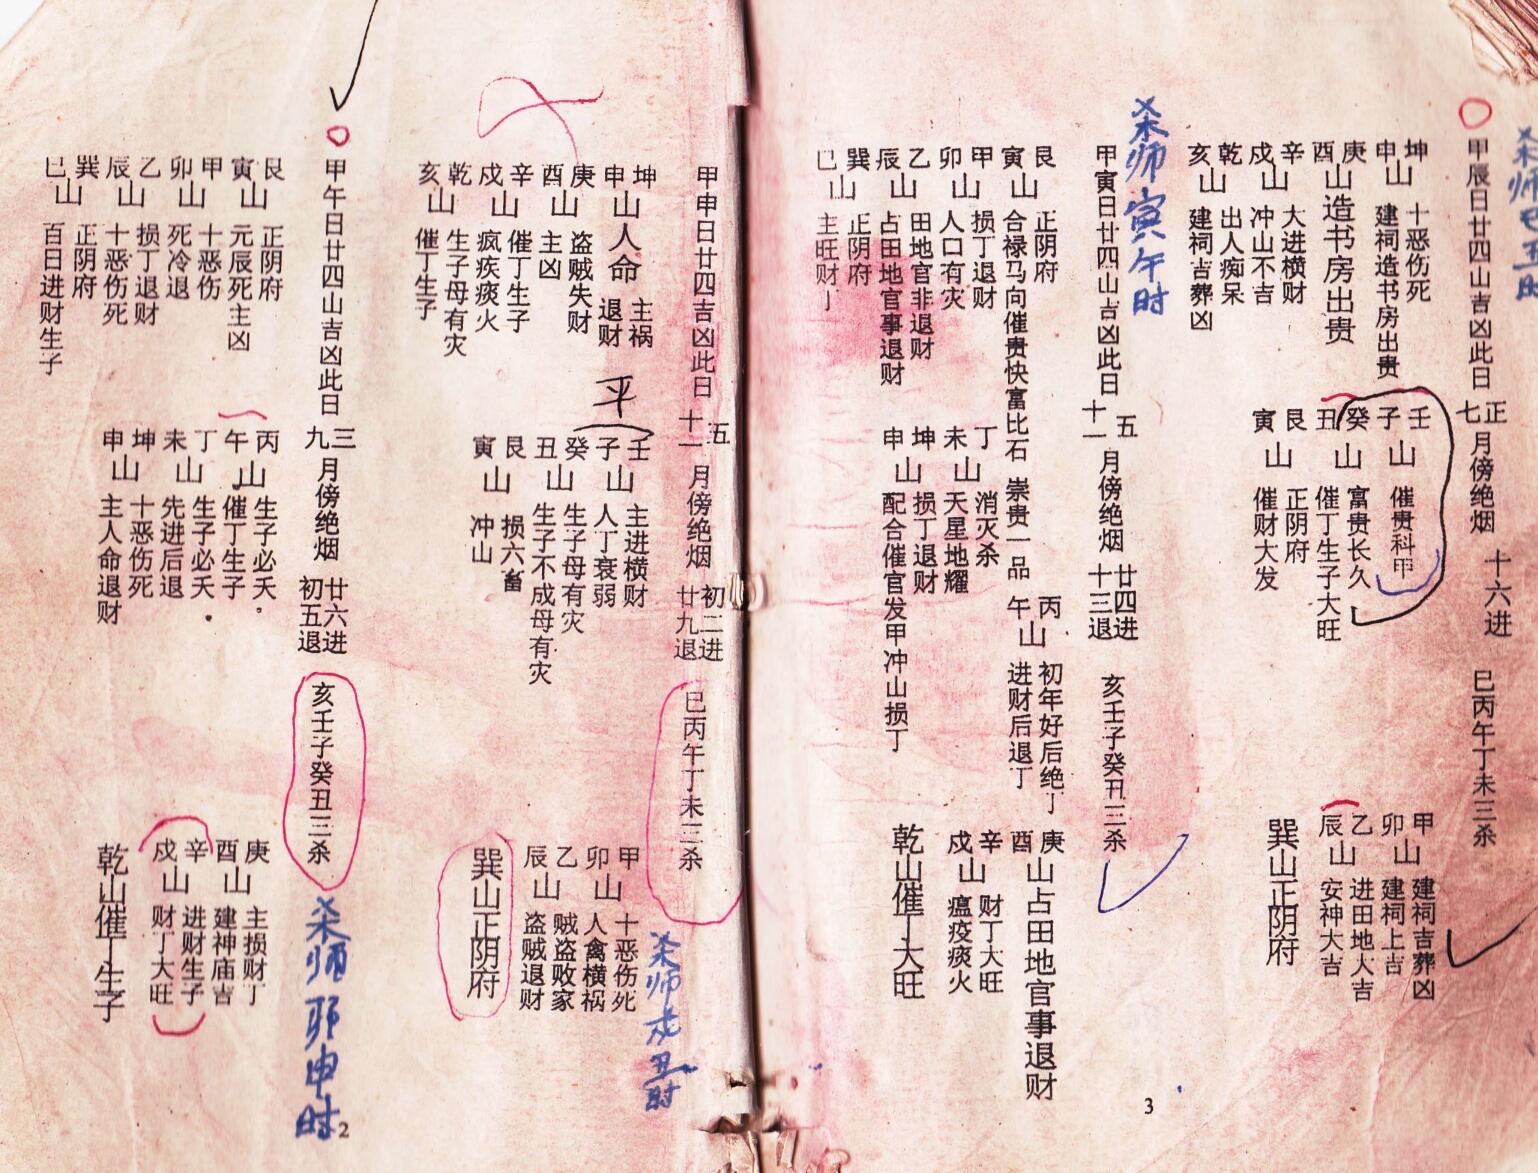 甲辰日廿四山吉凶此日 正七月傍绝烟 十六进 巳丙午丁未三杀
坤申山 十恶伤死 建祠造书房出贵
庚酉山造书房出贵
辛戌山 大进横财 冲山不吉
乾亥山 出人痴呆 建祠吉葬凶
壬子山 催贵科甲
癸丑山 富贵长久 催丁生子大旺
艮寅山 正阴府 催财大发
甲卯山 建祠吉葬凶 建祠上吉
乙辰山 进田地大吉 安神大吉
巽山正阴府
杀师寅午时
甲寅日廿四山吉凶此日 五十一月傍绝烟 廿四进十三退 亥壬子癸丑三杀
艮寅山 正阴府 合禄马向催贵快富比石 崇贵一品
甲卯山 损丁退财 人口有灾
乙辰山 田地官非退财 占田地官事退财
巽巳山 正阴府 主旺财丁
丙午山 初年好后绝丁 进财后退丁
丁未山 消灭杀 天星地耀
坤申山 损丁退财 配合催官发甲冲山损丁
庚酉山占田地官事退财
辛戌山 财丁大旺 瘟疫痰火
乾山催丁大旺
3
甲申日廿四吉凶此日 五十一月傍绝烟 初二进廿九退 巳丙午丁未三杀
杀师戌丑时
坤申山人命 主祸 退财
庚酉山 盗贼失财 主凶
辛戌山 催丁生子 疯疾痰火
乾亥山 生子母有灾 催丁生子
平
壬子山 主进横财 人丁衰弱
癸丑山 生子母有灾 生子不成母有灾
艮寅山 损六畜 冲山
甲卯山 十恶伤死 人禽横祸
乙辰山 贼盗败家 盗贼退财
巽山正阴府
甲午日廿四山吉凶此日 三九月傍绝烟 廿六进初五退 亥壬子癸丑三杀
杀师卯申时
艮寅山 正阴府 元辰死主凶
甲卯山 十恶伤 死冷退
乙辰山 损丁退财 十恶伤死
巽巳山 正阴府 百日进财生子
丙午山 生子必夭。 催丁生子
丁未山 生子必夭. 先进后退
坤申山 十恶伤死 主人命退财
庚酉山 主损财丁 建神庙吉
辛戌山 进财生子 财丁大旺
乾山催丁生子
2